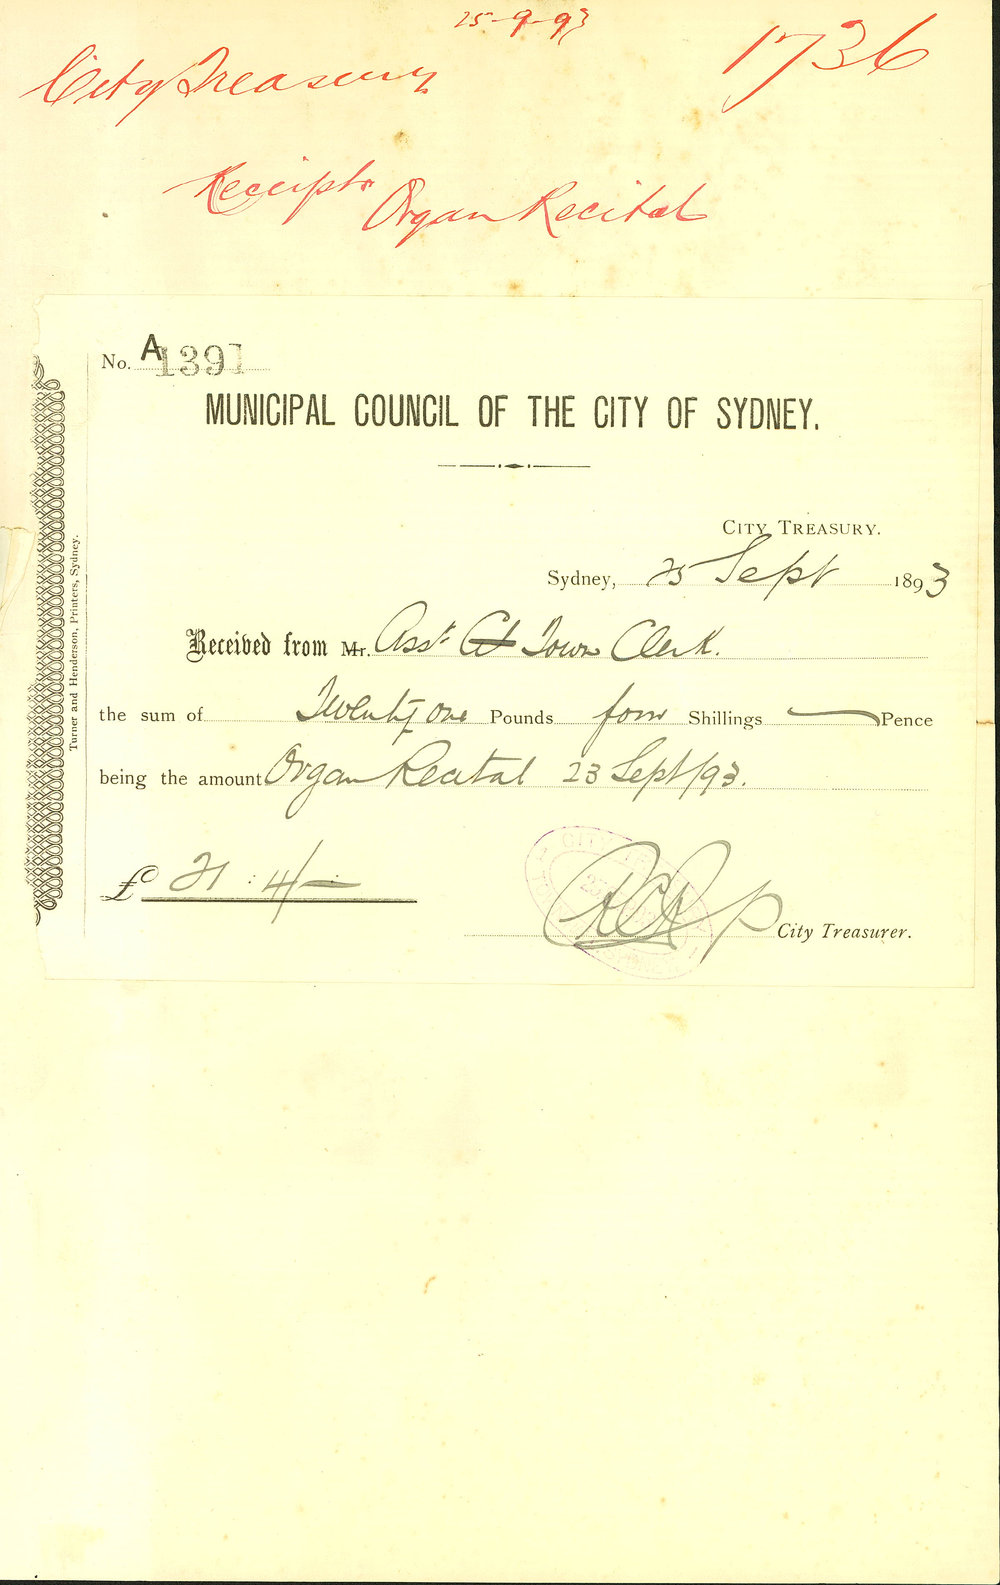 25-9-93
City Treasury 1736
Receipts Organ Recital
No. A1391
MUNICIPAL COUNCIL OF THE CITY OF SYDNEY.
CITY TREASURY.
Sydney, 25 Sept 1893
Received from Mr. Asst Ct Town Clerk.
the sum of Twenty one Pounds four Shillings — Pence
being the amount Organ Recital 23 Sept/93.
£ 21 : 4/-
City Treasurer.
Turner and Henderson, Printers, Sydney.